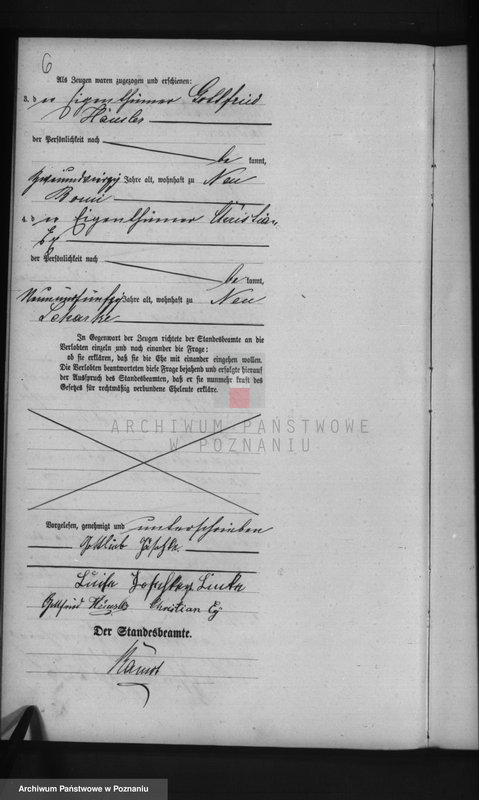 6
Als Zeugen waren zugezogen und erschienen:
3. der Eigenthümer Gottfried
Häusler
der Persönlichkeit nach
be kannt,
zweiundvierzig Jahre alt, wohnhaft zu Neu
Borui
4. der Eigenthümer Christian
Ey
der Persönlichkeit nach
be kannt,
Neunundfünfzig Jahre alt, wohnhaft zu Neu
Scharke
In Gegenwart der Zeugen richtete der Standesbeamte an die
Verlobten einzeln und nach einander die Frage:
ob sie erklären, daß sie die Ehe mit einander eingehen wollen.
Die Verlobten beantworteten diese Frage bejahend und erfolgte hierauf
der Ausspruch des Standesbeamten, daß er sie nunmehr kraft des
Gesetzes für rechtmäßig verbundene Eheleute erkläre.
ARCHIWUM PAŃSTWOWE
W POZNANIU
Vorgelesen, genehmigt und unterschrieben
Gottlieb Jäschke
Luise Jäschke, Linke
Gottfried Häusler Christian Ey
Der Standesbeamte.
Archiwum Państwowe w Poznaniu